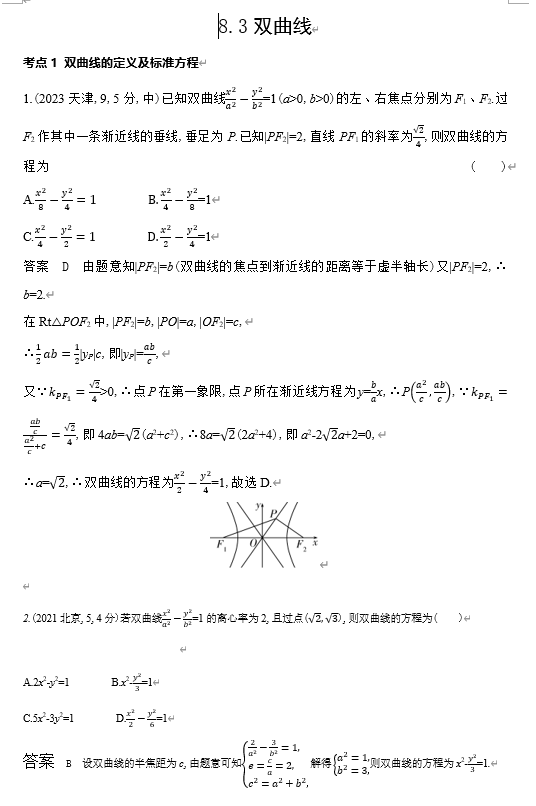 8.3 双曲线
考点1 双曲线的定义及标准方程
1.(2023 天津,9,5 分,中)已知双曲线x²/a²−y²/b²=1(a>0,b>0)的左、右焦点分别为 F₁、F₂.过
F₂作其中一条渐近线的垂线,垂足为 P.已知|PF₂|=2,直线 PF₁的斜率为√2/4,则双曲线的方
程为 ( )
A.x²/8−y²/4=1 B.x²/4−y²/8=1
C.x²/4−y²/2=1 D.x²/2−y²/4=1
答案 D 由题意知|PF₂|=b(双曲线的焦点到渐近线的距离等于虚半轴长)又|PF₂|=2,∴
b=2.
在 Rt△POF₂中,|PF₂|=b,|PO|=a,|OF₂|=c,
∴1/2 ab=1/2|yP|c,即|yP|=ab/c,
又∵kPF₁=√2/4>0,∴点 P 在第一象限,点 P 所在渐近线方程为 y=b/a x,∴P(a²/c,ab/c),∵kPF₁=
(ab/c)/(a²/c+c)=√2/4,即 4ab=√2(a²+c²),∴8a=√2(2a²+4),即 a²-2√2a+2=0,
∴a=√2,∴双曲线的方程为x²/2−y²/4=1,故选 D.
y
P
F₁ O F₂ x
2.(2021 北京,5,4 分)若双曲线x²/a²−y²/b²=1 的离心率为 2,且过点(√2,√3),则双曲线的方程为( )
A.2x²-y²=1 B.x²-y²/3=1
C.5x²-3y²=1 D.x²/2−y²/6=1
答案 B 设双曲线的半焦距为 c,由题意可知{2/a²−3/b²=1, e=c/a=2, c²=a²+b², 解得{a²=1, b²=3,则双曲线的方程为 x²-y²/3=1.